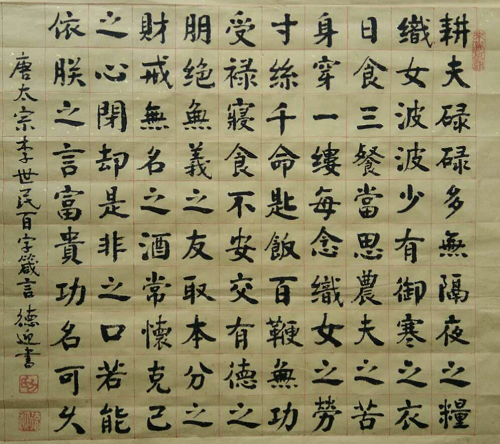 耕夫碌碌多無隔夜之糧
織女波波少有御寒之衣
日食三餐當思農夫之苦
身穿一縷每念織女之勞
寸絲千命匙飯百鞭無功
受祿寢食不安交有德之
朋絕無義之友取本分之
財戒無名之酒常懷克己
之心閉却是非之口若能
依朕之言富貴功名可久
唐太宗李世民百字箴言德迎書